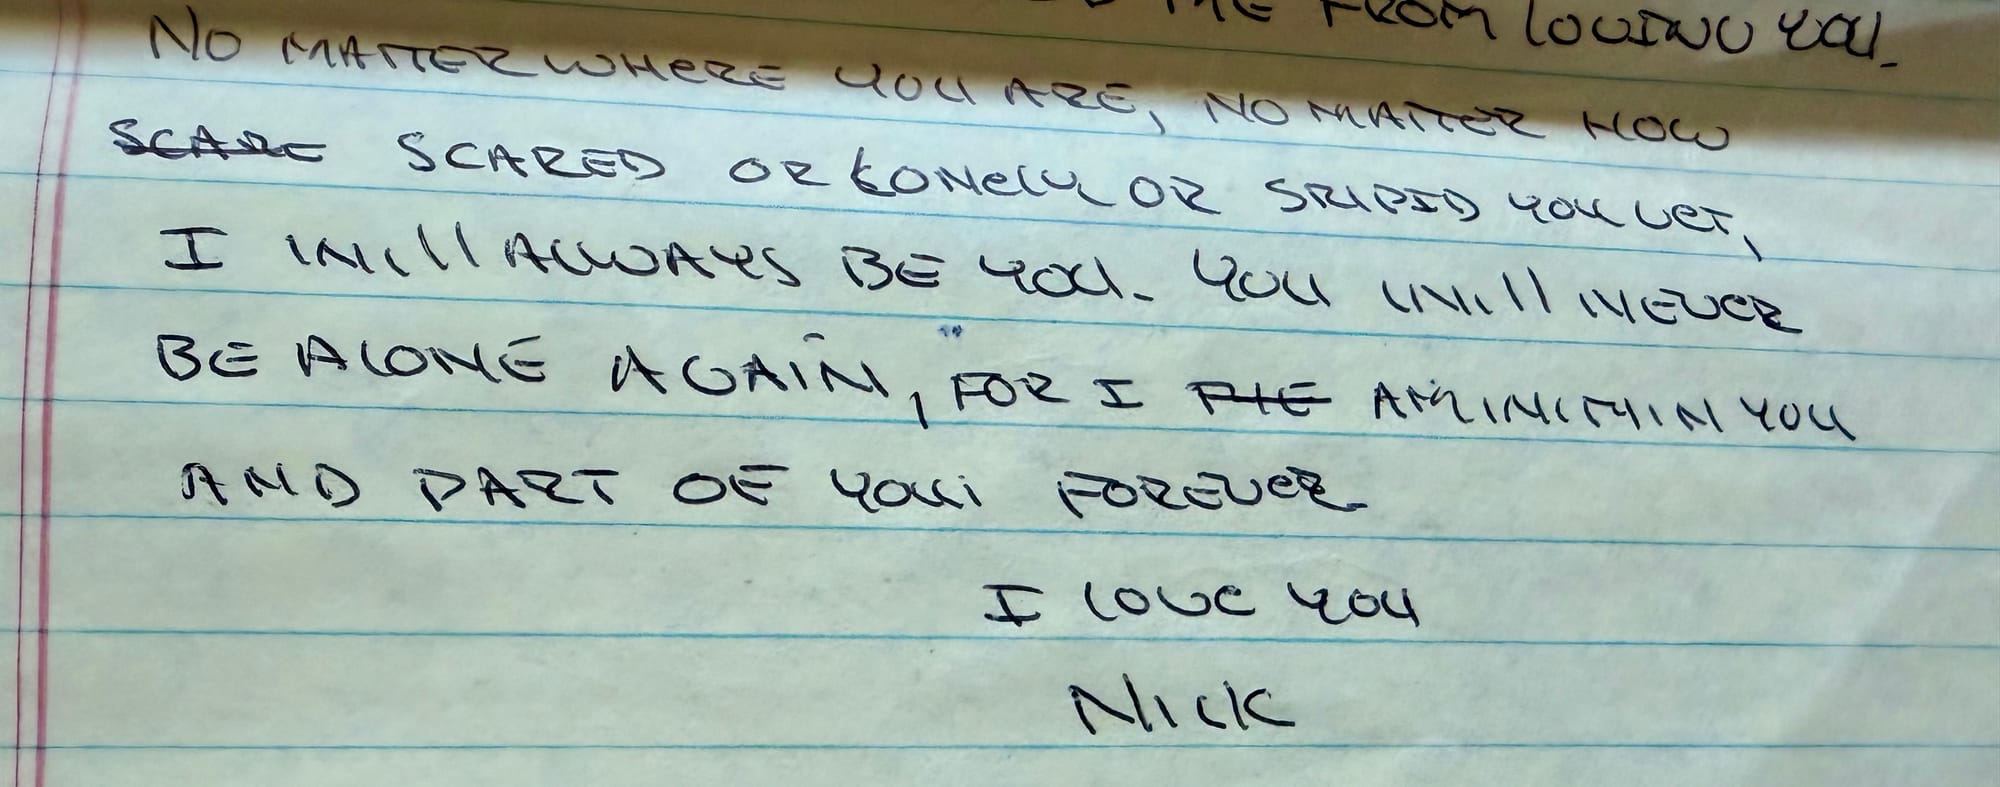 ME FROM LOVING YOU.
NO MATTER WHERE YOU ARE, NO MATTER HOW
SCARE SCARED OR LONELY OR STUPID YOU GET,
I WILL ALWAYS BE YOU. YOU WILL NEVER
BE ALONE AGAIN, FOR I AM WITHIN YOU
AND PART OF YOU FOREVER
I LOVE YOU
NICK